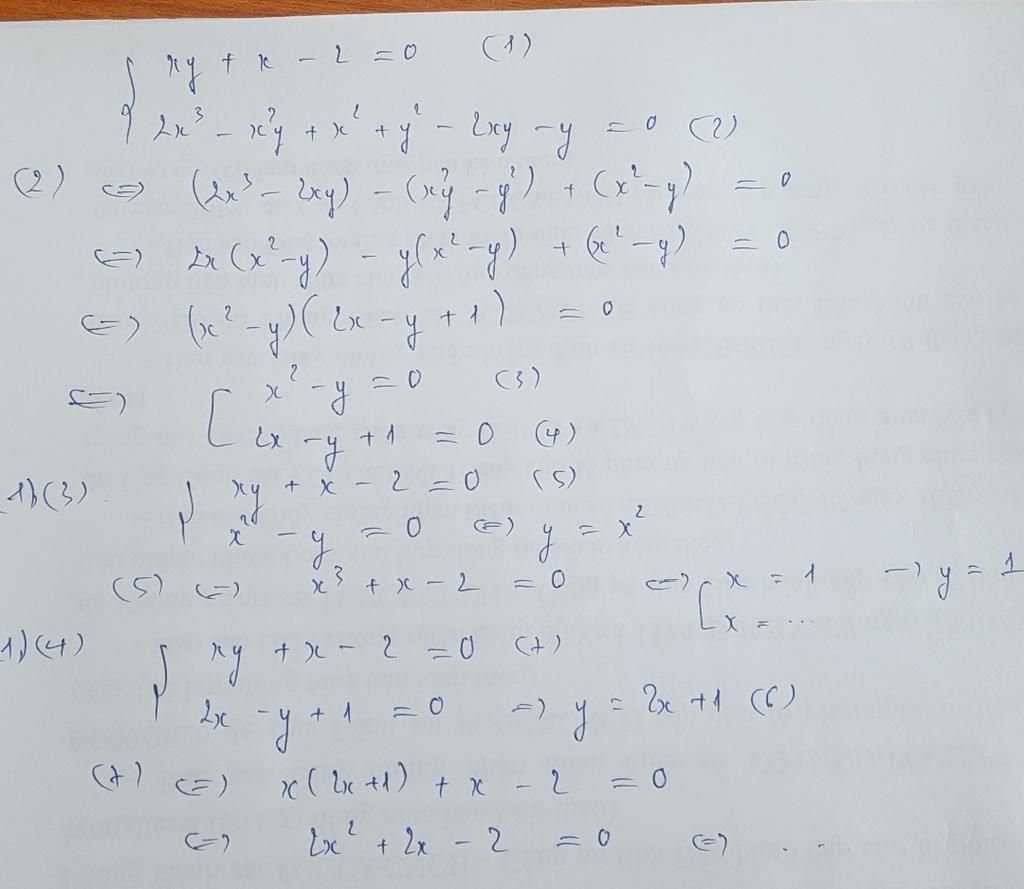 { xy + x - 2 = 0 (1)
2x³ - x²y + x² + y² - 2xy - y = 0 (2)
(2) <=> (2x³ - 2xy) - (x²y - y²) + (x² - y) = 0
<=> 2x(x² - y) - y(x² - y) + (x² - y) = 0
<=> (x² - y)(2x - y + 1) = 0
<=> [ x² - y = 0 (3)
2x - y + 1 = 0 (4)
1)(3) { xy + x - 2 = 0 (5)
x² - y = 0 <=> y = x²
(5) <=> x³ + x - 2 = 0 <=> [ x = 1 → y = 1
x = ...
1)(4) { xy + x - 2 = 0 (7)
2x - y + 1 = 0 => y = 2x + 1 (6)
(7) <=> x(2x + 1) + x - 2 = 0
<=> 2x² + 2x - 2 = 0 <=> ...